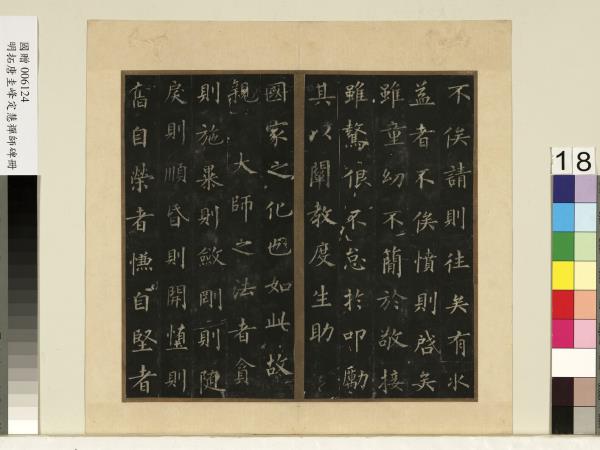 國贈 006124
明拓唐圭峰定慧禪師碑冊
18
不俟請則往矣有求
益者不俟憤則啓矣
雖童幼不簡於敬接
雖驁佷不怠於叩勵
其以闡教度生助
國家之化也如此故
親 大師之法者貪
則施暴則斂剛則隨
戾則順昏則開墮則
奮自榮者慊自堅者